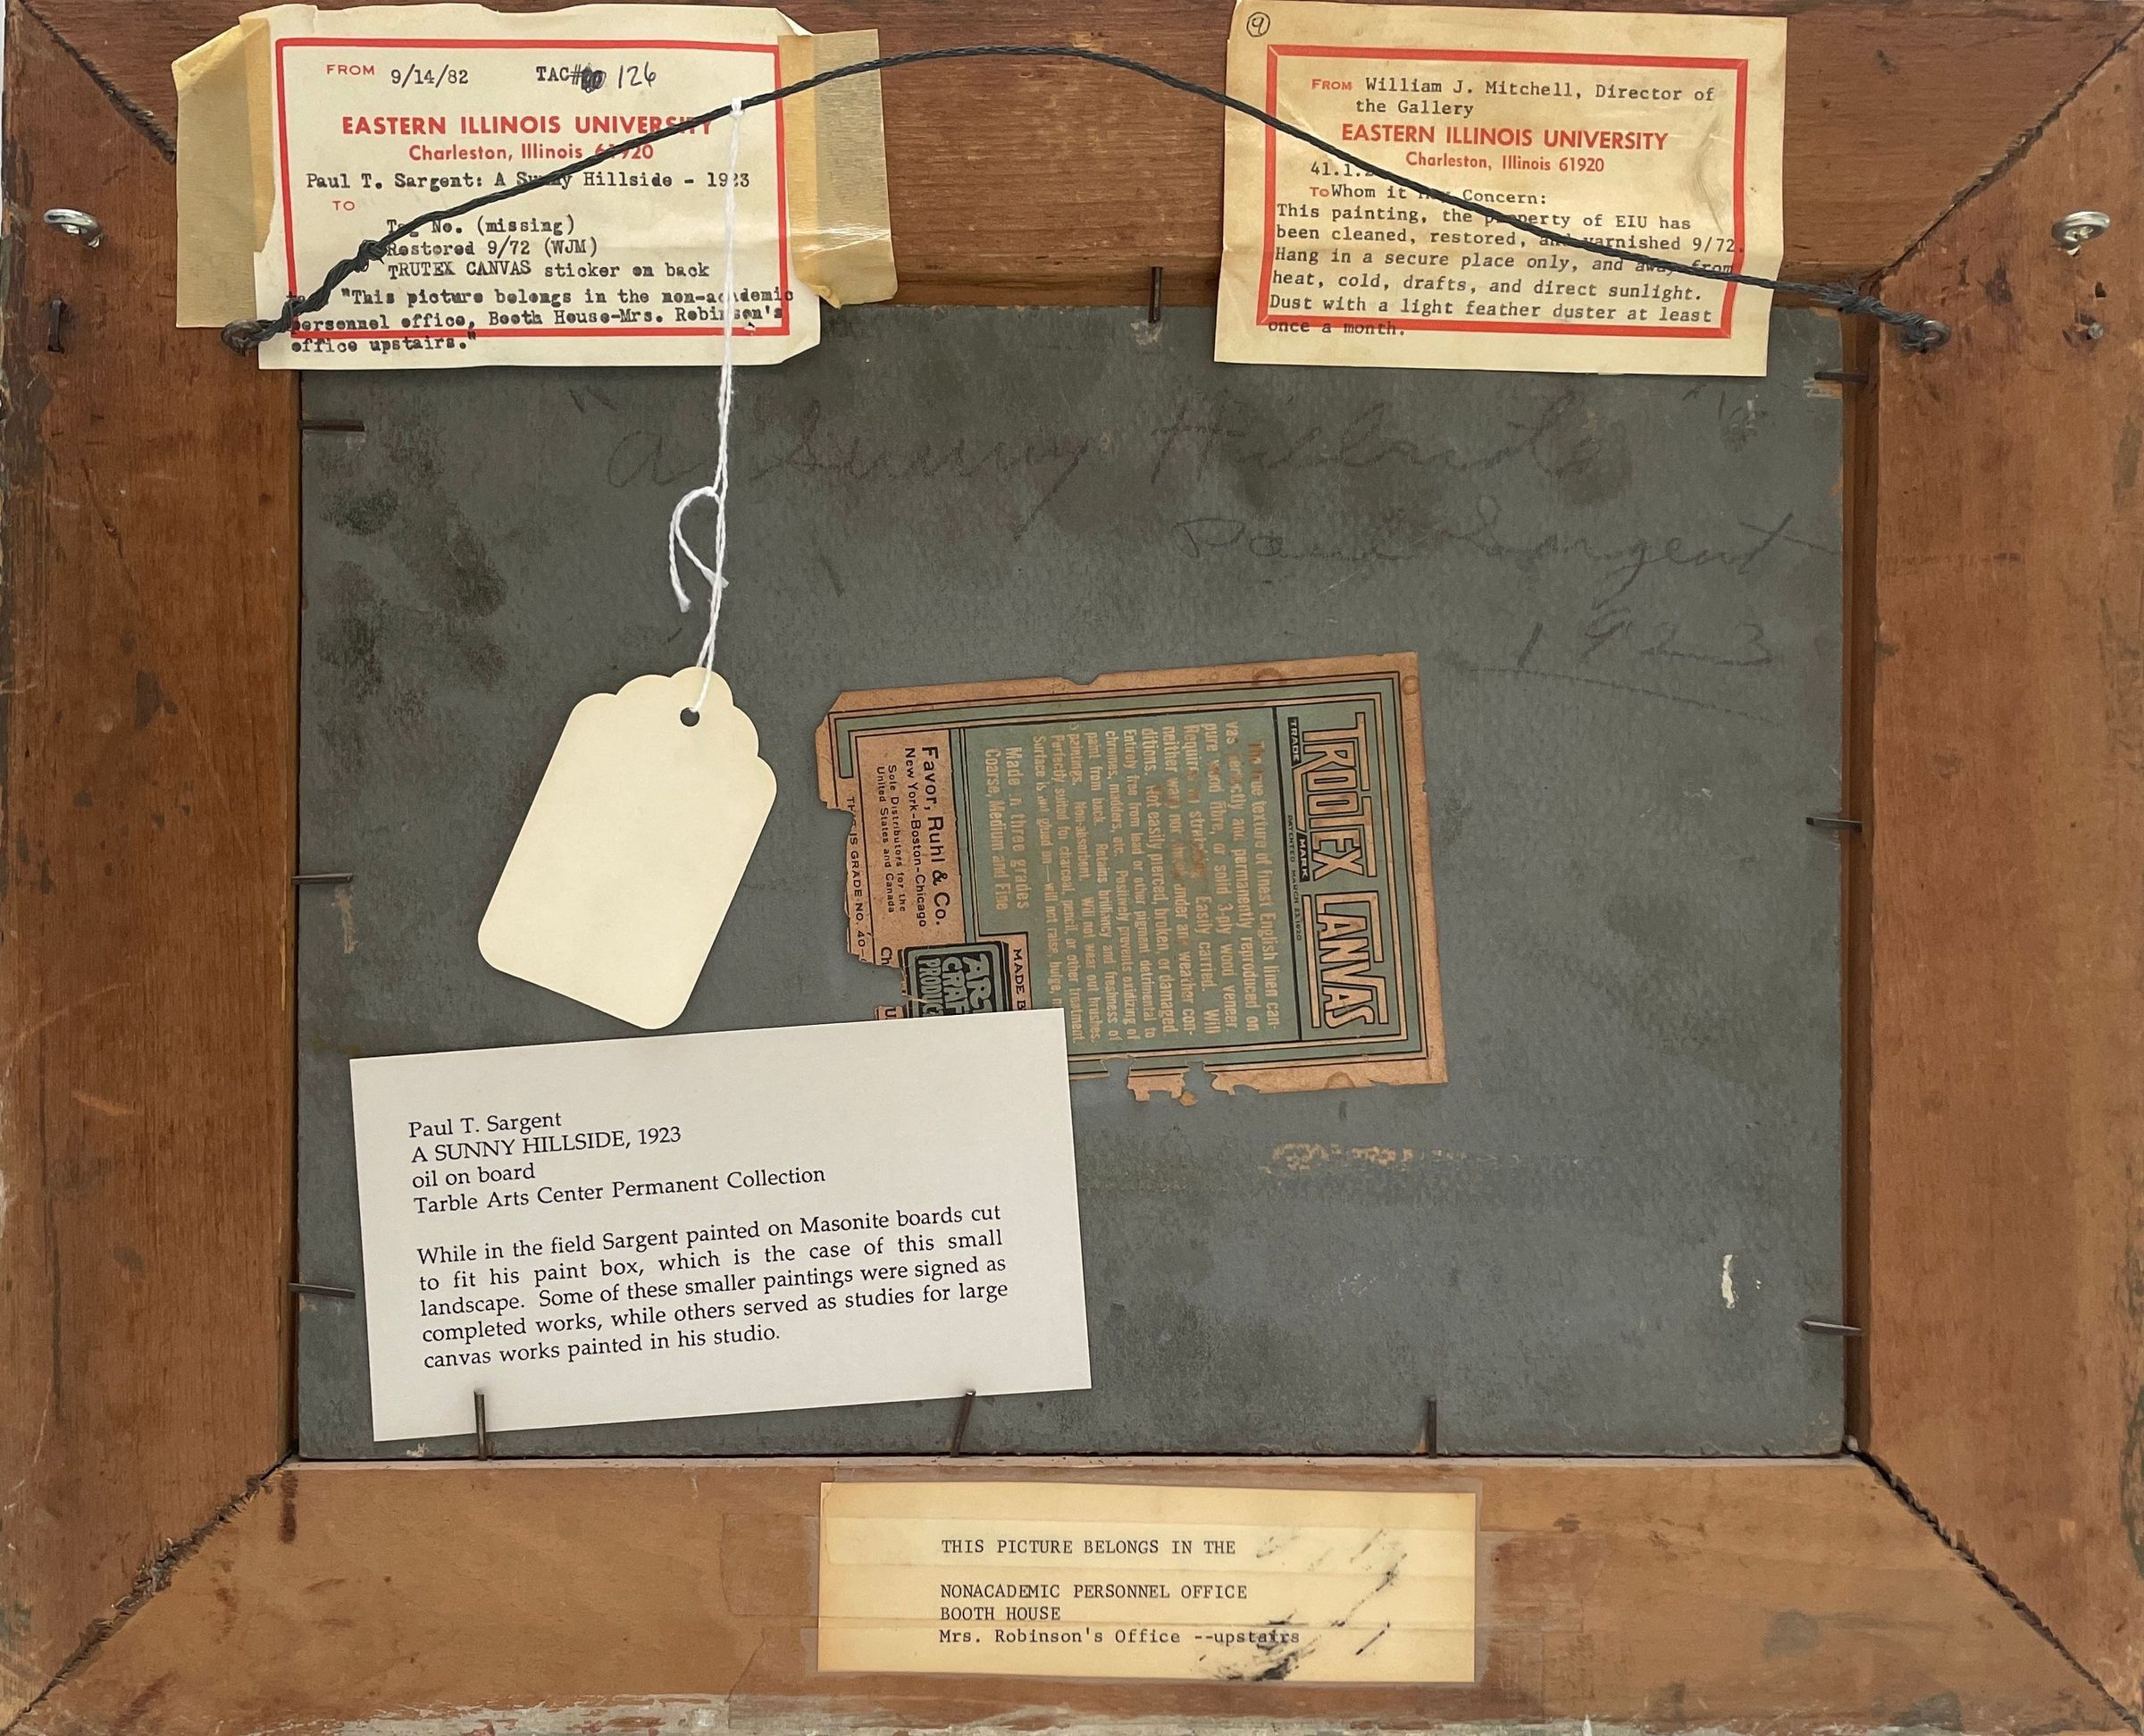 FROM 9/14/82 TAC# 126
EASTERN ILLINOIS UNIVERSITY
Charleston, Illinois 61920
Paul T. Sargent: A Sunny Hillside - 1923
TO
Tag No. (missing)
Restored 9/72 (WJM)
TRUTEX CANVAS sticker on back
"This picture belongs in the non-academic
personnel office, Booth House-Mrs. Robinson's
office upstairs."
9
FROM William J. Mitchell, Director of
the Gallery
EASTERN ILLINOIS UNIVERSITY
Charleston, Illinois 61920
41.1.
To Whom it May Concern:
This painting, the property of EIU has
been cleaned, restored, and varnished 9/72.
Hang in a secure place only, and away from
heat, cold, drafts, and direct sunlight.
Dust with a light feather duster at least
once a month.
"A Sunny Hillside"
Paul Sargent
1923
TROOTEX CANVAS
TRADE MARK
PATENTED MARCH 23, 1920
The true texture of finest English linen can-
vas perfectly and permanently reproduced on
pure wood fibre, or solid 3-ply wood veneer
Requires no stretching Easily carried. Will
neither warp nor shrink under any weather con-
ditions. Not easily pierced, broken, or damaged
Entirely free from lead or other pigment detrimental to
chromes, madders, etc. Positively prevents oxidizing of
paint from back. Retains brilliancy and freshness of
paintings. Non-absorbent. Will not wear out brushes.
Perfectly suited for charcoal, pencil, or other treatment.
Surface is not glued on—will not raise, bulge,
Made in three grades
Coarse, Medium and Fine
MADE B
ART
CRAF
PRODUC
Favor, Ruhl & Co.
New York-Boston-Chicago
Sole Distributors for the
United States and Canada
Ch
THIS IS GRADE NO. 40-
Paul T. Sargent
A SUNNY HILLSIDE, 1923
oil on board
Tarble Arts Center Permanent Collection
While in the field Sargent painted on Masonite boards cut
to fit his paint box, which is the case of this small
landscape. Some of these smaller paintings were signed as
completed works, while others served as studies for large
canvas works painted in his studio.
THIS PICTURE BELONGS IN THE
NONACADEMIC PERSONNEL OFFICE
BOOTH HOUSE
Mrs. Robinson's Office --upstairs